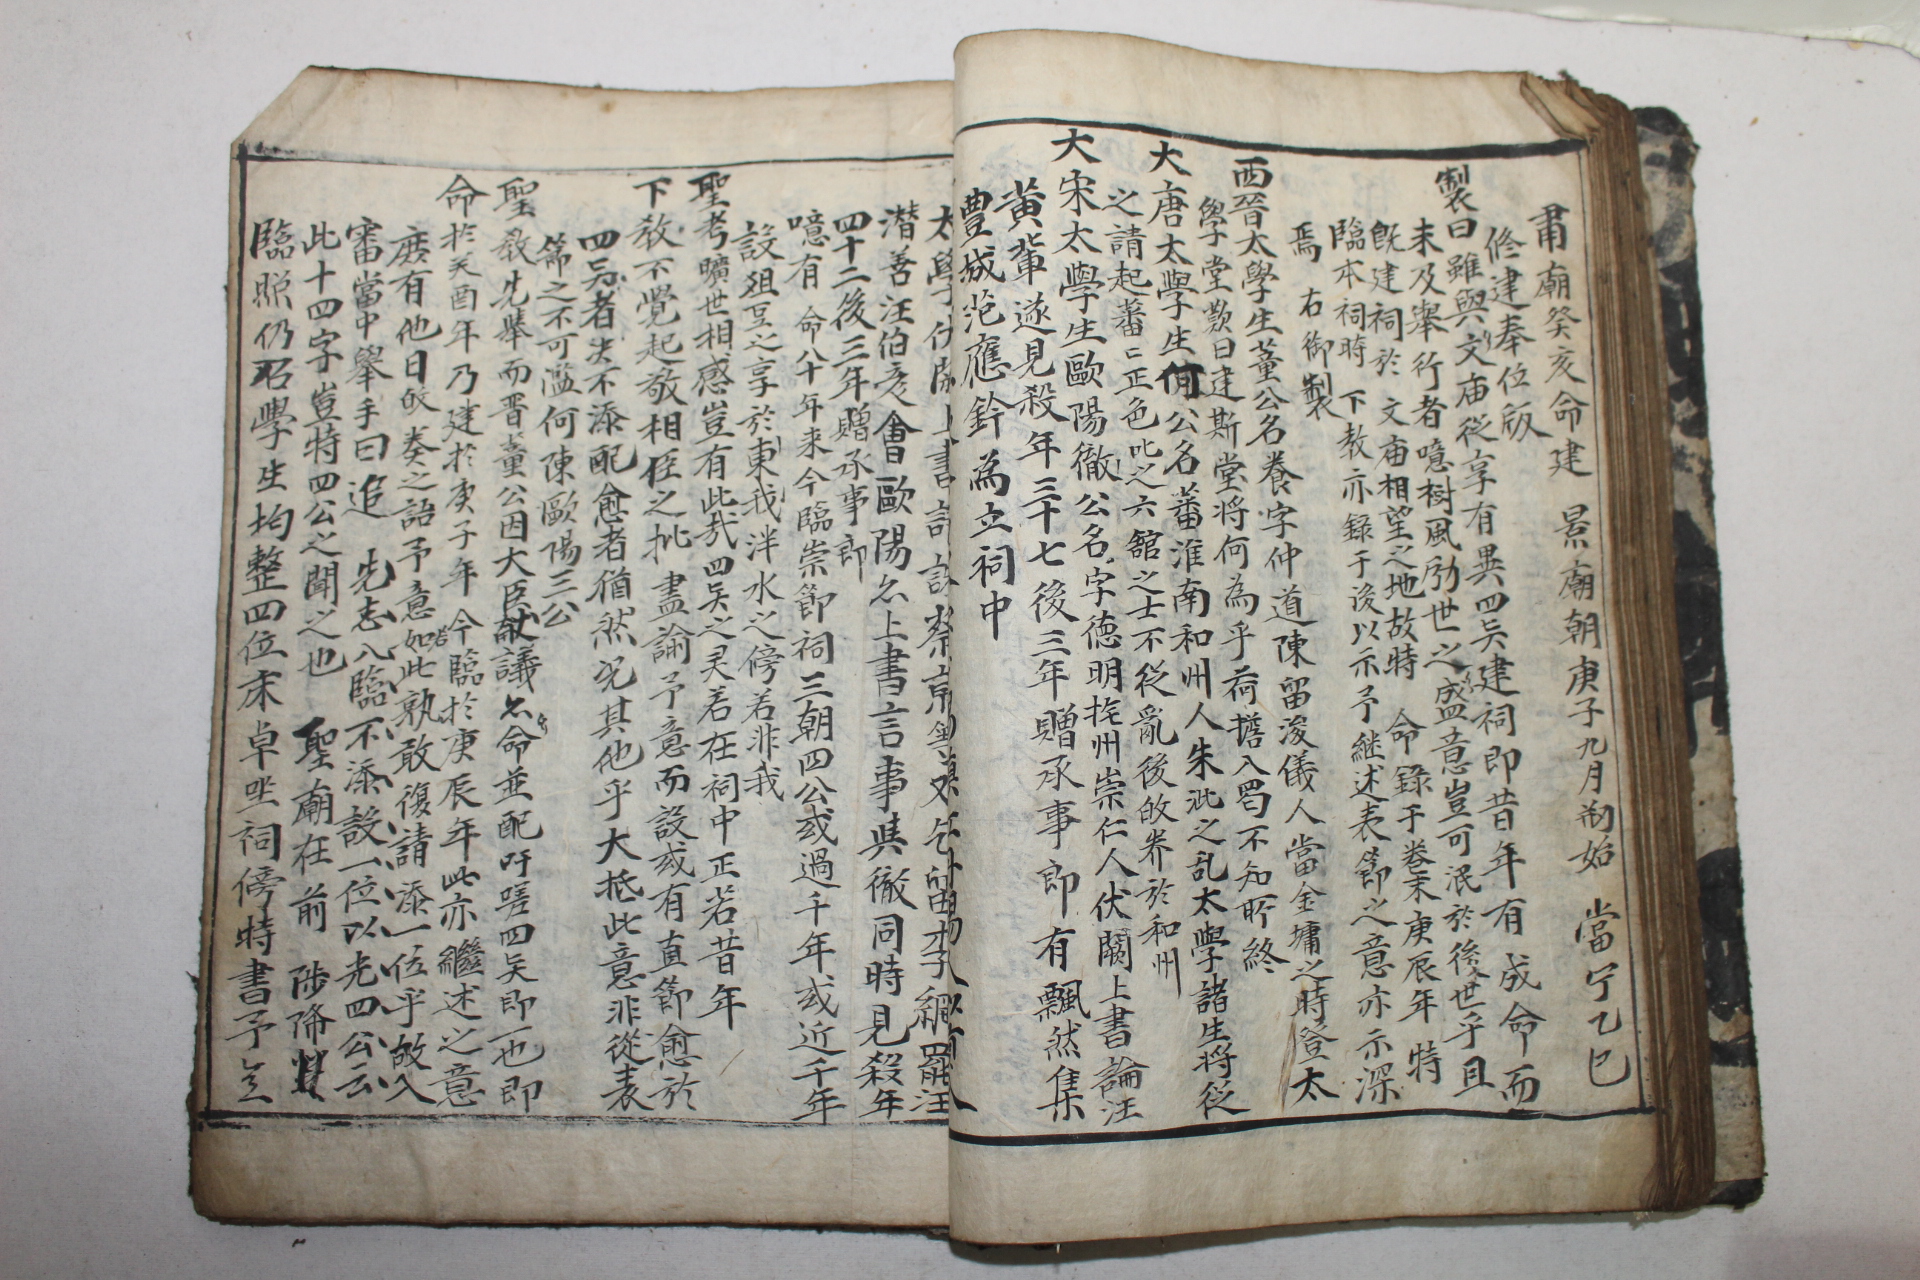 肅廟癸亥命建 景廟朝庚子九月刱始 當宁乙巳
修建奉位版
製曰雖與文庙從享有異四吴建祠即昔年有成命而
未及舉行者噫樹風励世之盛意豈可泯於後世乎且
旣建祠於 文庙相望之地故特 命錄于卷末庚辰年 特
臨本祠時 下教亦錄于後以示予継述表節之意亦示深
焉 右御製
西晉太學生董公名養字仲道陳留浚儀人當金墉之時登太
學堂歎曰建斯堂将何為乎荷擔入蜀不知所終
大唐太學生何公名蕃淮南和州人朱泚之乱太學諸生将從
之請起蕃正色叱之六舘之士不從亂後敀养於和州
大宋太學生歐陽徹公名字德明撫州崇仁人伏闕上書論汪
黄輩遂見殺年三十七後三年贈承事郎有飄然集
豊城范應鈐為立祠中
太學 上書
潜善汪伯彦會歐陽公上書言事與徹同時見殺年
四十二後三年贈承事郎
噫有 命八十年来今臨崇節祠三朝四公或過千年或近千年
設俎豆之享於東我泮水之傍若非我
聖考曠世相感豈有此哉四吴之灵若在祠中正若昔年
下教不覺起敬相臣之批盡諭予意而設或有直節愈於
四吴者决不添配愈者猶然况其他乎大抵此意非從表
節之不可濫何陳歐陽三公
聖教先舉而晋董公因大臣献議命並配吁嗟四吴即一也即
命於癸酉年乃建於庚子年 今臨於庚辰年此亦繼述之意
庶有他日敀奏之語予意如此孰敢復請添一位乎敀入
審當中舉手曰追 先志八臨不添設一位以光四公云
此十四字豈特四公之聞之也 聖廟在前 陟降
臨照仍召學生均整四位床卓坐祠傍特書予